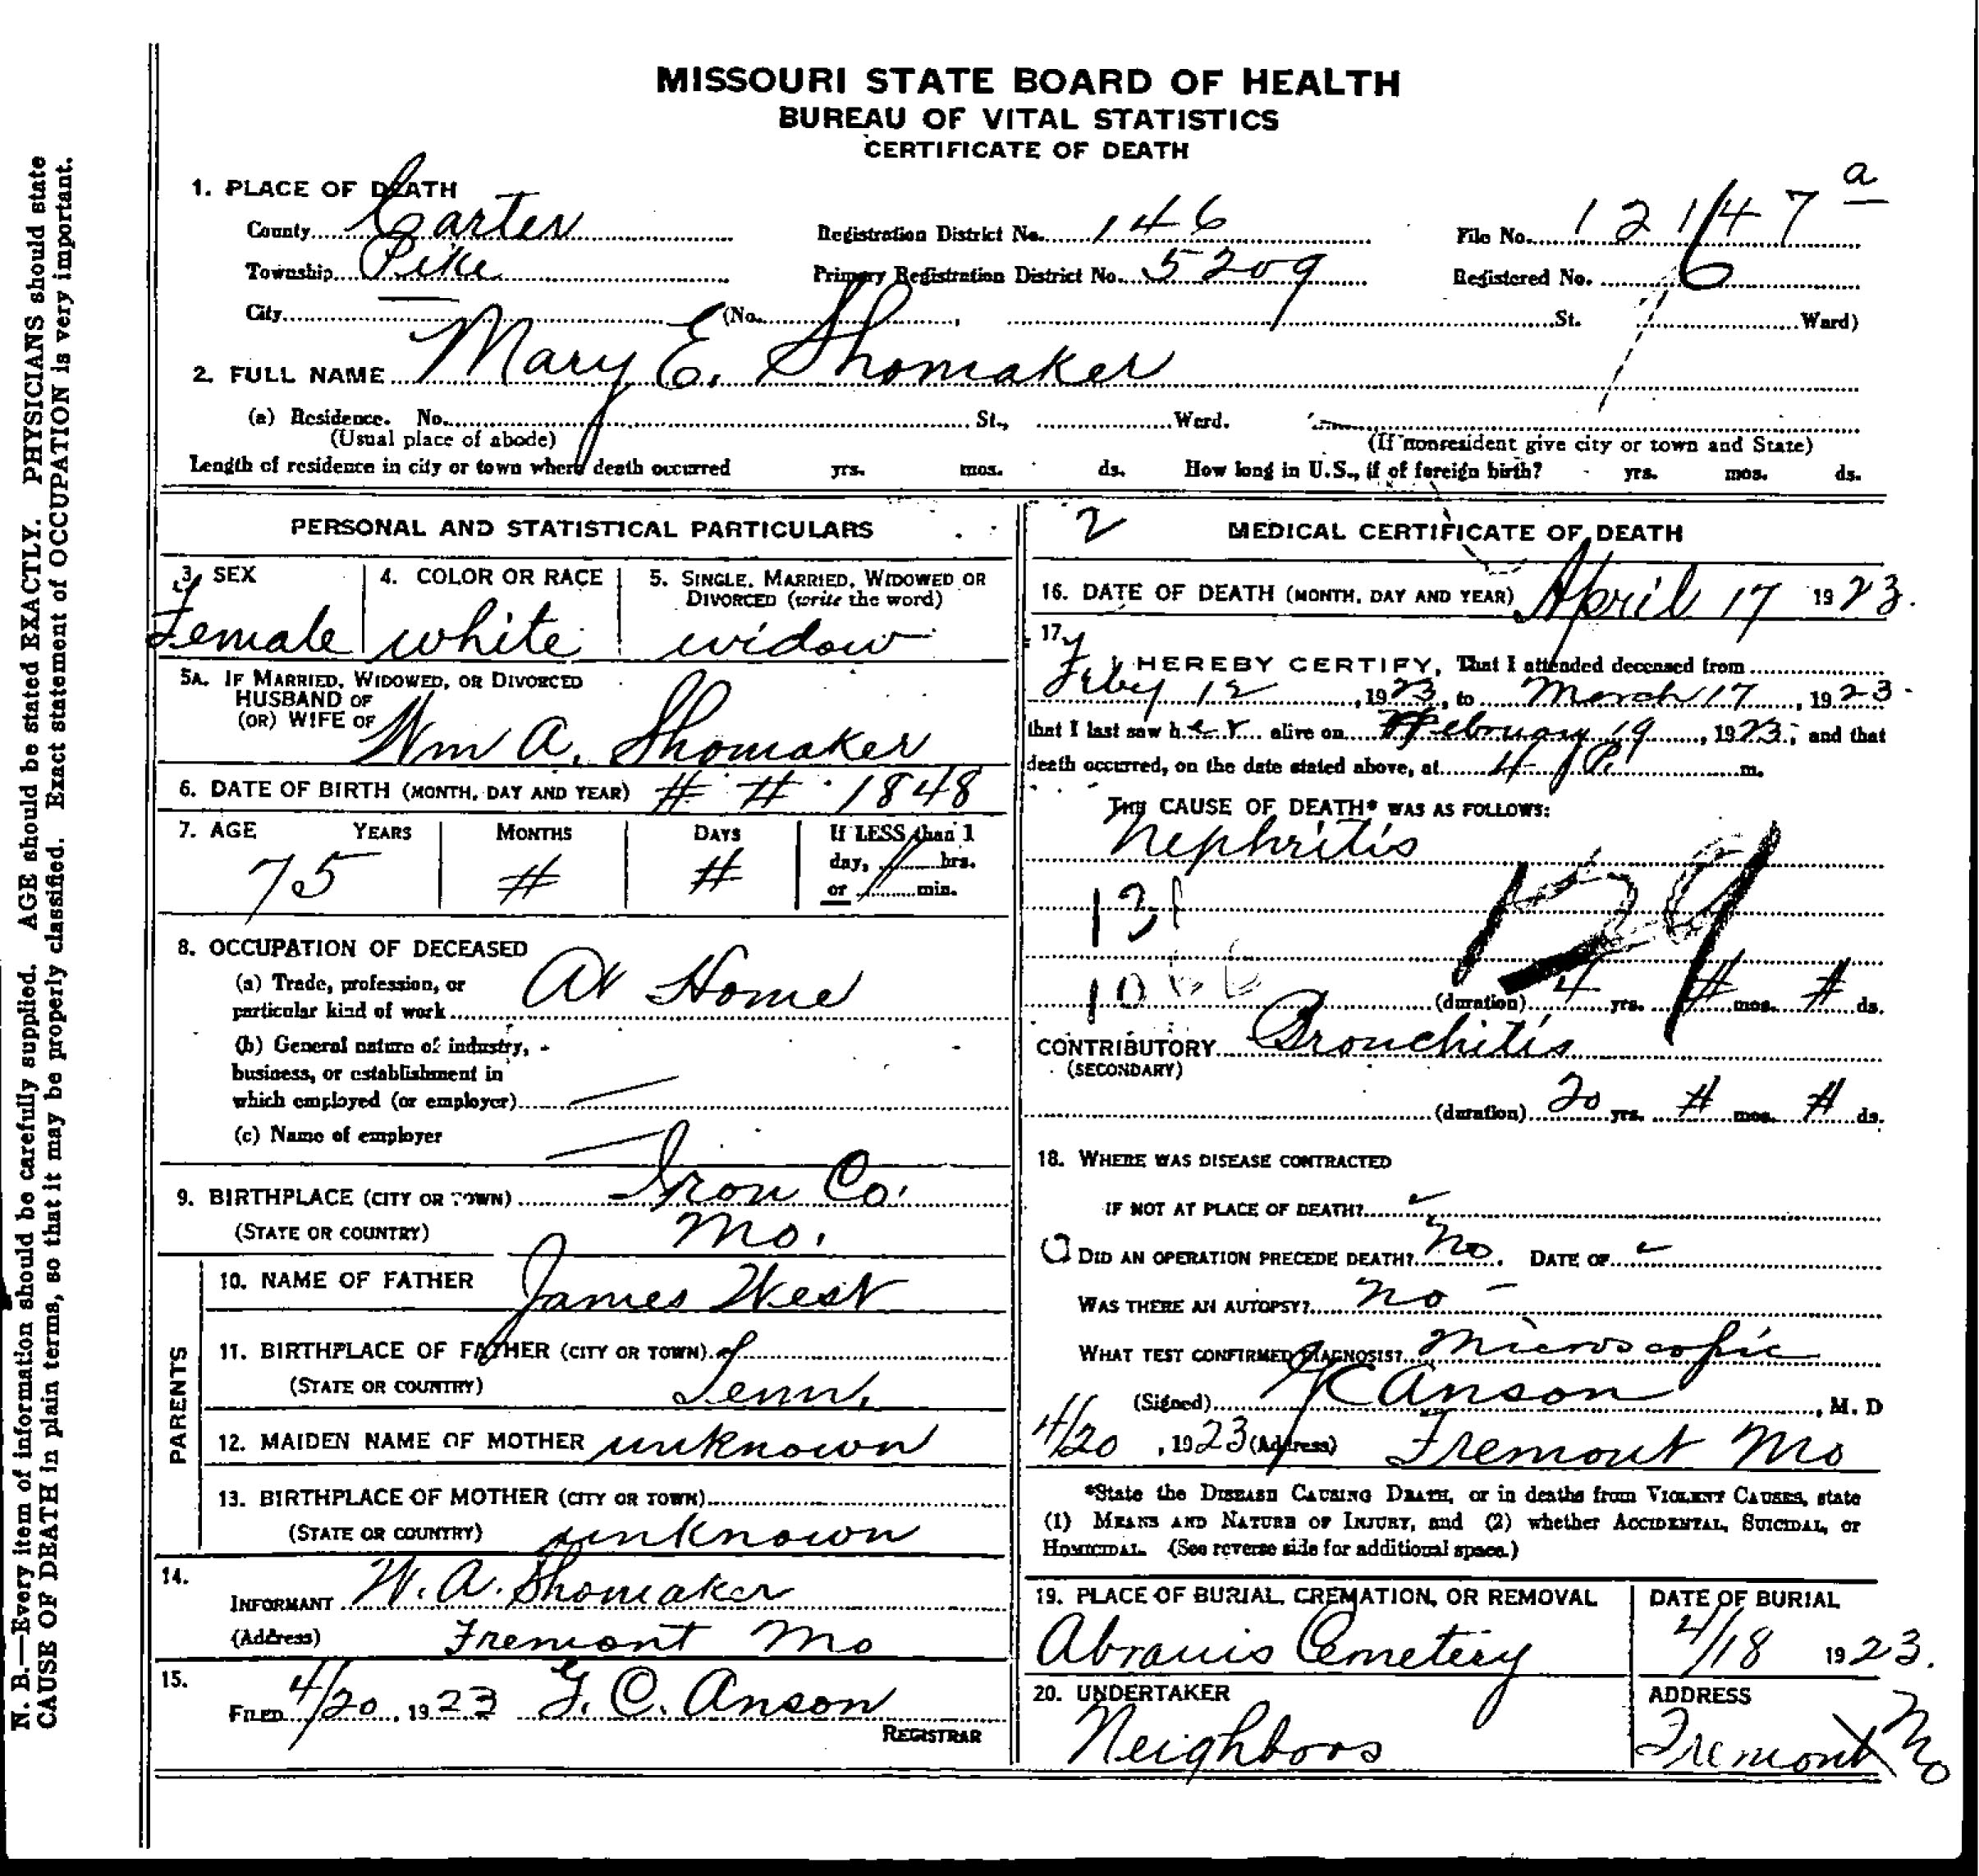 MISSOURI STATE BOARD OF HEALTH
BUREAU OF VITAL STATISTICS
CERTIFICATE OF DEATH
1. PLACE OF DEATH
County Carter Registration District No. 146 File No. 12147 a
Township Pike Primary Registration District No. 5209 Registered No. 6
City (No. , St. Ward)
2. FULL NAME Mary E. Shomaker
(a) Residence. No. St., Ward.
(Usual place of abode) (If nonresident give city or town and State)
Length of residence in city or town where death occurred yrs. mos. ds. How long in U.S., if of foreign birth? yrs. mos. ds.
PERSONAL AND STATISTICAL PARTICULARS
3. SEX 4. COLOR OR RACE 5. SINGLE, MARRIED, WIDOWED OR
DIVORCED (write the word)
Female white widow
5A. IF MARRIED, WIDOWED, OR DIVORCED
HUSBAND OF
(OR) WIFE OF Wm A. Shomaker
6. DATE OF BIRTH (MONTH, DAY AND YEAR) # # 1848
7. AGE YEARS MONTHS DAYS If LESS than 1
day, hrs.
75 # # or min.
8. OCCUPATION OF DECEASED
(a) Trade, profession, or
particular kind of work At Home
(b) General nature of industry,
business, or establishment in
which employed (or employer)
(c) Name of employer
9. BIRTHPLACE (CITY OR TOWN) Iron Co.
(STATE OR COUNTRY) Mo.
PARENTS
10. NAME OF FATHER James West
11. BIRTHPLACE OF FATHER (CITY OR TOWN)
(STATE OR COUNTRY) Tenn.
12. MAIDEN NAME OF MOTHER unknown
13. BIRTHPLACE OF MOTHER (CITY OR TOWN)
(STATE OR COUNTRY) unknown
14.
INFORMANT W. A. Shomaker
(Address) Fremont Mo
15.
FILED 4/20, 1923 F. C. Anson
REGISTRAR
2 MEDICAL CERTIFICATE OF DEATH
16. DATE OF DEATH (MONTH, DAY AND YEAR) April 17 1923.
17.
I HEREBY CERTIFY, That I attended deceased from
Feby 12, 1923, to March 17, 1923.
that I last saw her alive on February 19, 1923; and that
death occurred, on the date stated above, at 4 P. m.
THE CAUSE OF DEATH* WAS AS FOLLOWS:
Nephritis
131
129
10
(duration) 4 yrs. # mos. # ds.
CONTRIBUTORY Bronchitis
(SECONDARY)
(duration) 20 yrs. # mos. # ds.
18. WHERE WAS DISEASE CONTRACTED
IF NOT AT PLACE OF DEATH?
DID AN OPERATION PRECEDE DEATH? No. DATE OF
WAS THERE AN AUTOPSY? no
WHAT TEST CONFIRMED DIAGNOSIS? Microscopic
(Signed) Anson, M. D
4/20, 1923 (Address) Fremont Mo
*State the DISEASE CAUSING DEATH, or in deaths from VIOLENT CAUSES, state
(1) MEANS AND NATURE OF INJURY, and (2) whether ACCIDENTAL, SUICIDAL, or
HOMICIDAL. (See reverse side for additional space.)
19. PLACE OF BURIAL, CREMATION, OR REMOVAL DATE OF BURIAL
Abrams Cemetery 4/18 1923.
20. UNDERTAKER ADDRESS
Neighbors Fremont Mo
N. B.—Every item of information should be carefully supplied. AGE should be stated EXACTLY. PHYSICIANS should state
CAUSE OF DEATH in plain terms, so that it may be properly classified. Exact statement of OCCUPATION is very important.